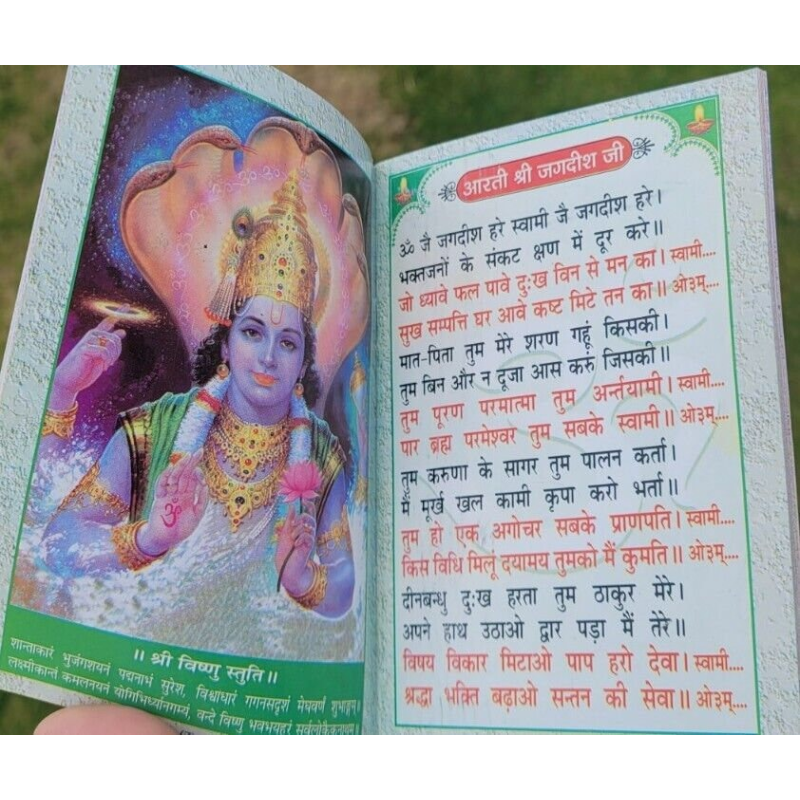 ॥ श्री विष्णु स्तुति॥
शान्ताकारं भुजंगशयनं पद्यनाभं सुरेश, विश्वाधारं गगनसदृशं मेघवर्णं शुभाङ्गम्।
लक्ष्मीकान्तं कमलनयनं योगिभिर्ध्यानगम्यं, वन्दे विष्णु भवभयहरं सर्वलोकैकनाथम्॥
आरती श्री जगदीश जी
ॐ जै जगदीश हरे स्वामी जै जगदीश हरे।
भक्तजनों के संकट क्षण में दूर करे॥
जो ध्यावे फल पावे दुःख विन से मन का। स्वामी....
सुख सम्पत्ति घर आवे कष्ट मिटे तन का॥ ओ३म्....
मात-पिता तुम मेरे शरण गहूं किसकी।
तुम बिन और न दूजा आस करुं जिसकी॥
तुम पूरण परमात्मा तुम अर्न्तयामी। स्वामी....
पार ब्रह्म परमेश्वर तुम सबके स्वामी॥ ओ३म्....
तुम करुणा के सागर तुम पालन कर्ता।
मैं मूर्ख खल कामी कृपा करो भर्ता॥
तुम हो एक अगोचर सबके प्राणपति। स्वामी....
किस विधि मिलूं दयामय तुमको मैं कुमति॥ ओ३म्....
दीनबन्धु दुःख हरता तुम ठाकुर मेरे।
अपने हाथ उठाओ द्वार पड़ा मैं तेरे॥
विषय विकार मिटाओ पाप हरो देवा। स्वामी....
श्रद्धा भक्ति बढ़ाओ सन्तन की सेवा॥ ओ३म्....